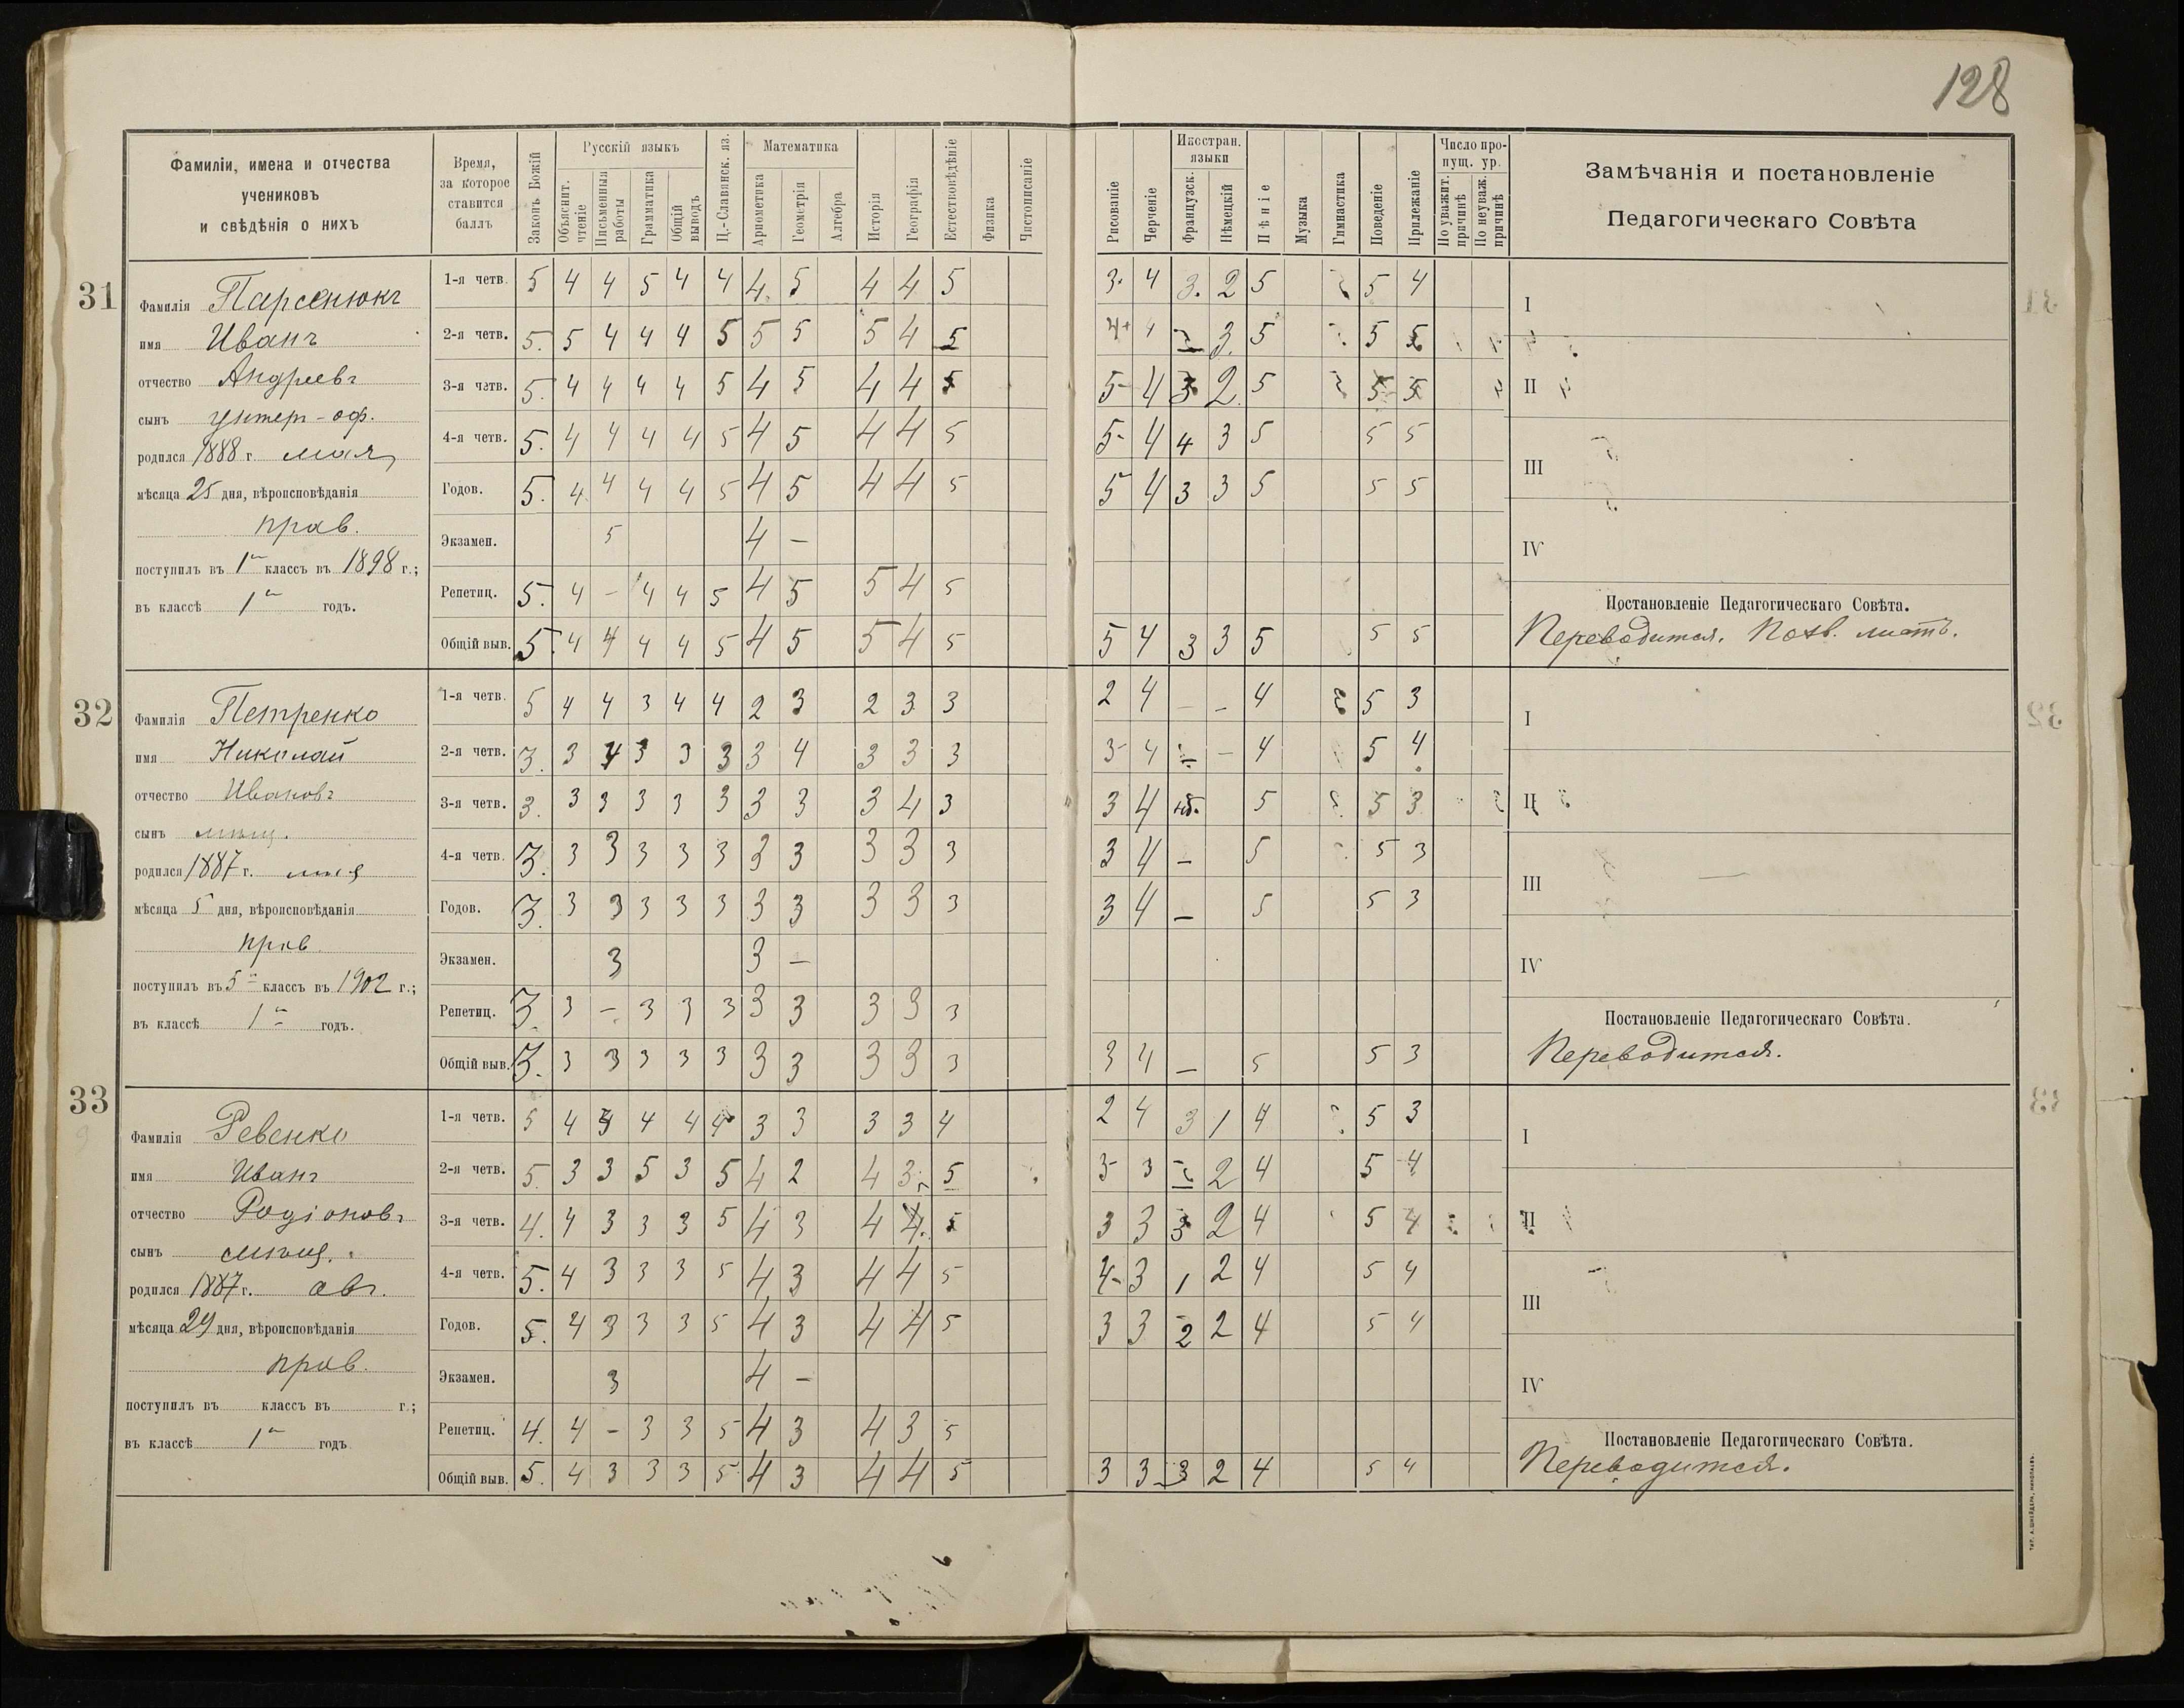 128
Фамиліи, имена и отчества
учениковъ
и свѣдѣнія о нихъ
Время,
за которое
ставится
баллъ
Законъ Божій
Русскій языкъ
Объяснит. чтеніе
Письменныя работы
Грамматика
Общій выводъ
Ц.-Славянск. яз.
Математика
Ариѳметика
Геометрія
Алгебра
Исторія
Географія
Естествовѣдѣніе
Физика
Чистописаніе
Рисованіе
Черченіе
Иностран. языки
Французск.
Нѣмецкій
Пѣніе
Музыка
Гимнастика
Поведеніе
Прилежаніе
Число пропущ. ур.
По уважит. причинѣ
По неуваж. причинѣ
Замѣчанія и постановленіе
Педагогическаго Совѣта
31
Фамилія Парсенюкъ
имя Иванъ
отчество Андреевъ
сынъ унтер-оф.
родился 1888 г. мая
мѣсяца 25 дня, вѣроисповѣданія
прав.
поступилъ въ 1й классъ въ 1898 г.;
въ классѣ 1й годъ.
1-я четв. 5 4 4 5 4 4 4 5 4 4 5 3 4 3 2 5 5 4
2-я четв. 5 5 4 4 4 5 5 5 5 4 5 4+ 4 3 5 5 5
3-я четв. 5 4 4 4 4 5 4 5 4 4 5 5- 4 3 2 5 5 5
4-я четв. 5 4 4 4 4 5 4 5 4 4 5 5- 4 4 3 5 5 5
Годов. 5 4 4 4 4 5 4 5 4 4 5 5 4 3 3 5 5 5
Экзамен. 5 4 —
Репетиц. 5 4 – 4 4 5 4 5 5 4 5
Общій выв. 5 4 4 4 4 5 4 5 5 4 5 5 4 3 3 5 5 5
I
II
III
IV
Постановленіе Педагогическаго Совѣта.
Переводится. Похв. листъ.
32
Фамилія Петренко
имя Николай
отчество Ивановъ
сынъ мѣщ.
родился 1887 г. мая
мѣсяца 5 дня, вѣроисповѣданія
прав.
поступилъ въ 5й классъ въ 1902 г.;
въ классѣ 1й годъ.
1-я четв. 5 4 4 3 4 4 2 3 2 3 3 2 4 – – 4 5 3
2-я четв. 3 3 4 3 3 3 3 4 3 3 3 3- 4 – – 4 5 4
3-я четв. 3 3 3 3 3 3 3 3 3 4 3 3 4 нб. 5 5 3
4-я четв. 3 3 3 3 3 3 3 3 3 3 3 3 4 – 5 5 3
Годов. 3 3 3 3 3 3 3 3 3 3 3 3 4 – 5 5 3
Экзамен. 3 3 —
Репетиц. 3 3 – 3 3 3 3 3 3 3 3
Общій выв. 3 3 3 3 3 3 3 3 3 3 3 3 4 – 5 5 3
I
II
III
IV
Постановленіе Педагогическаго Совѣта.
Переводится.
33
Фамилія Ревенко
имя Иванъ
отчество Родіоновъ
сынъ мѣщ.
родился 1887 г. авг.
мѣсяца 29 дня, вѣроисповѣданія
прав.
поступилъ въ классъ въ г.;
въ классѣ 1й годъ
1-я четв. 5 4 4 4 4 3 3 3 3 4 2 4 3 1 4 5 3
2-я четв. 5 3 3 5 3 5 4 2 4 3 5 3- 3 2 4 5 4
3-я четв. 4 4 3 3 3 5 4 3 4 4 5 3 3 3 2 4 5 4
4-я четв. 5 4 3 3 3 5 4 3 4 4 5 4- 3 1 2 4 5 4
Годов. 5 4 3 3 3 5 4 3 4 4 5 3 3 2 2 4 5 4
Экзамен. 3 4 —
Репетиц. 4 4 – 3 3 5 4 3 4 3 5
Общій выв. 5 4 3 3 3 5 4 3 4 4 5 3 3 3 2 4 5 4
I
II
III
IV
Постановленіе Педагогическаго Совѣта.
Переводится.